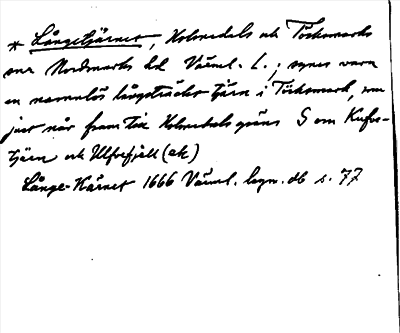 * Långetjärnet, Holmedals och Töcksmarks
snr Nordmarks hd Värml. L.; synes vara
en namnlös långsträckt tjärn i Töcksmark, som
just når fram till Holmedals gräns S om Kufve-
tjärn och Ulfvefjäll (ek)
Långe-Kärnet 1666 Värml. legn. db s. 77